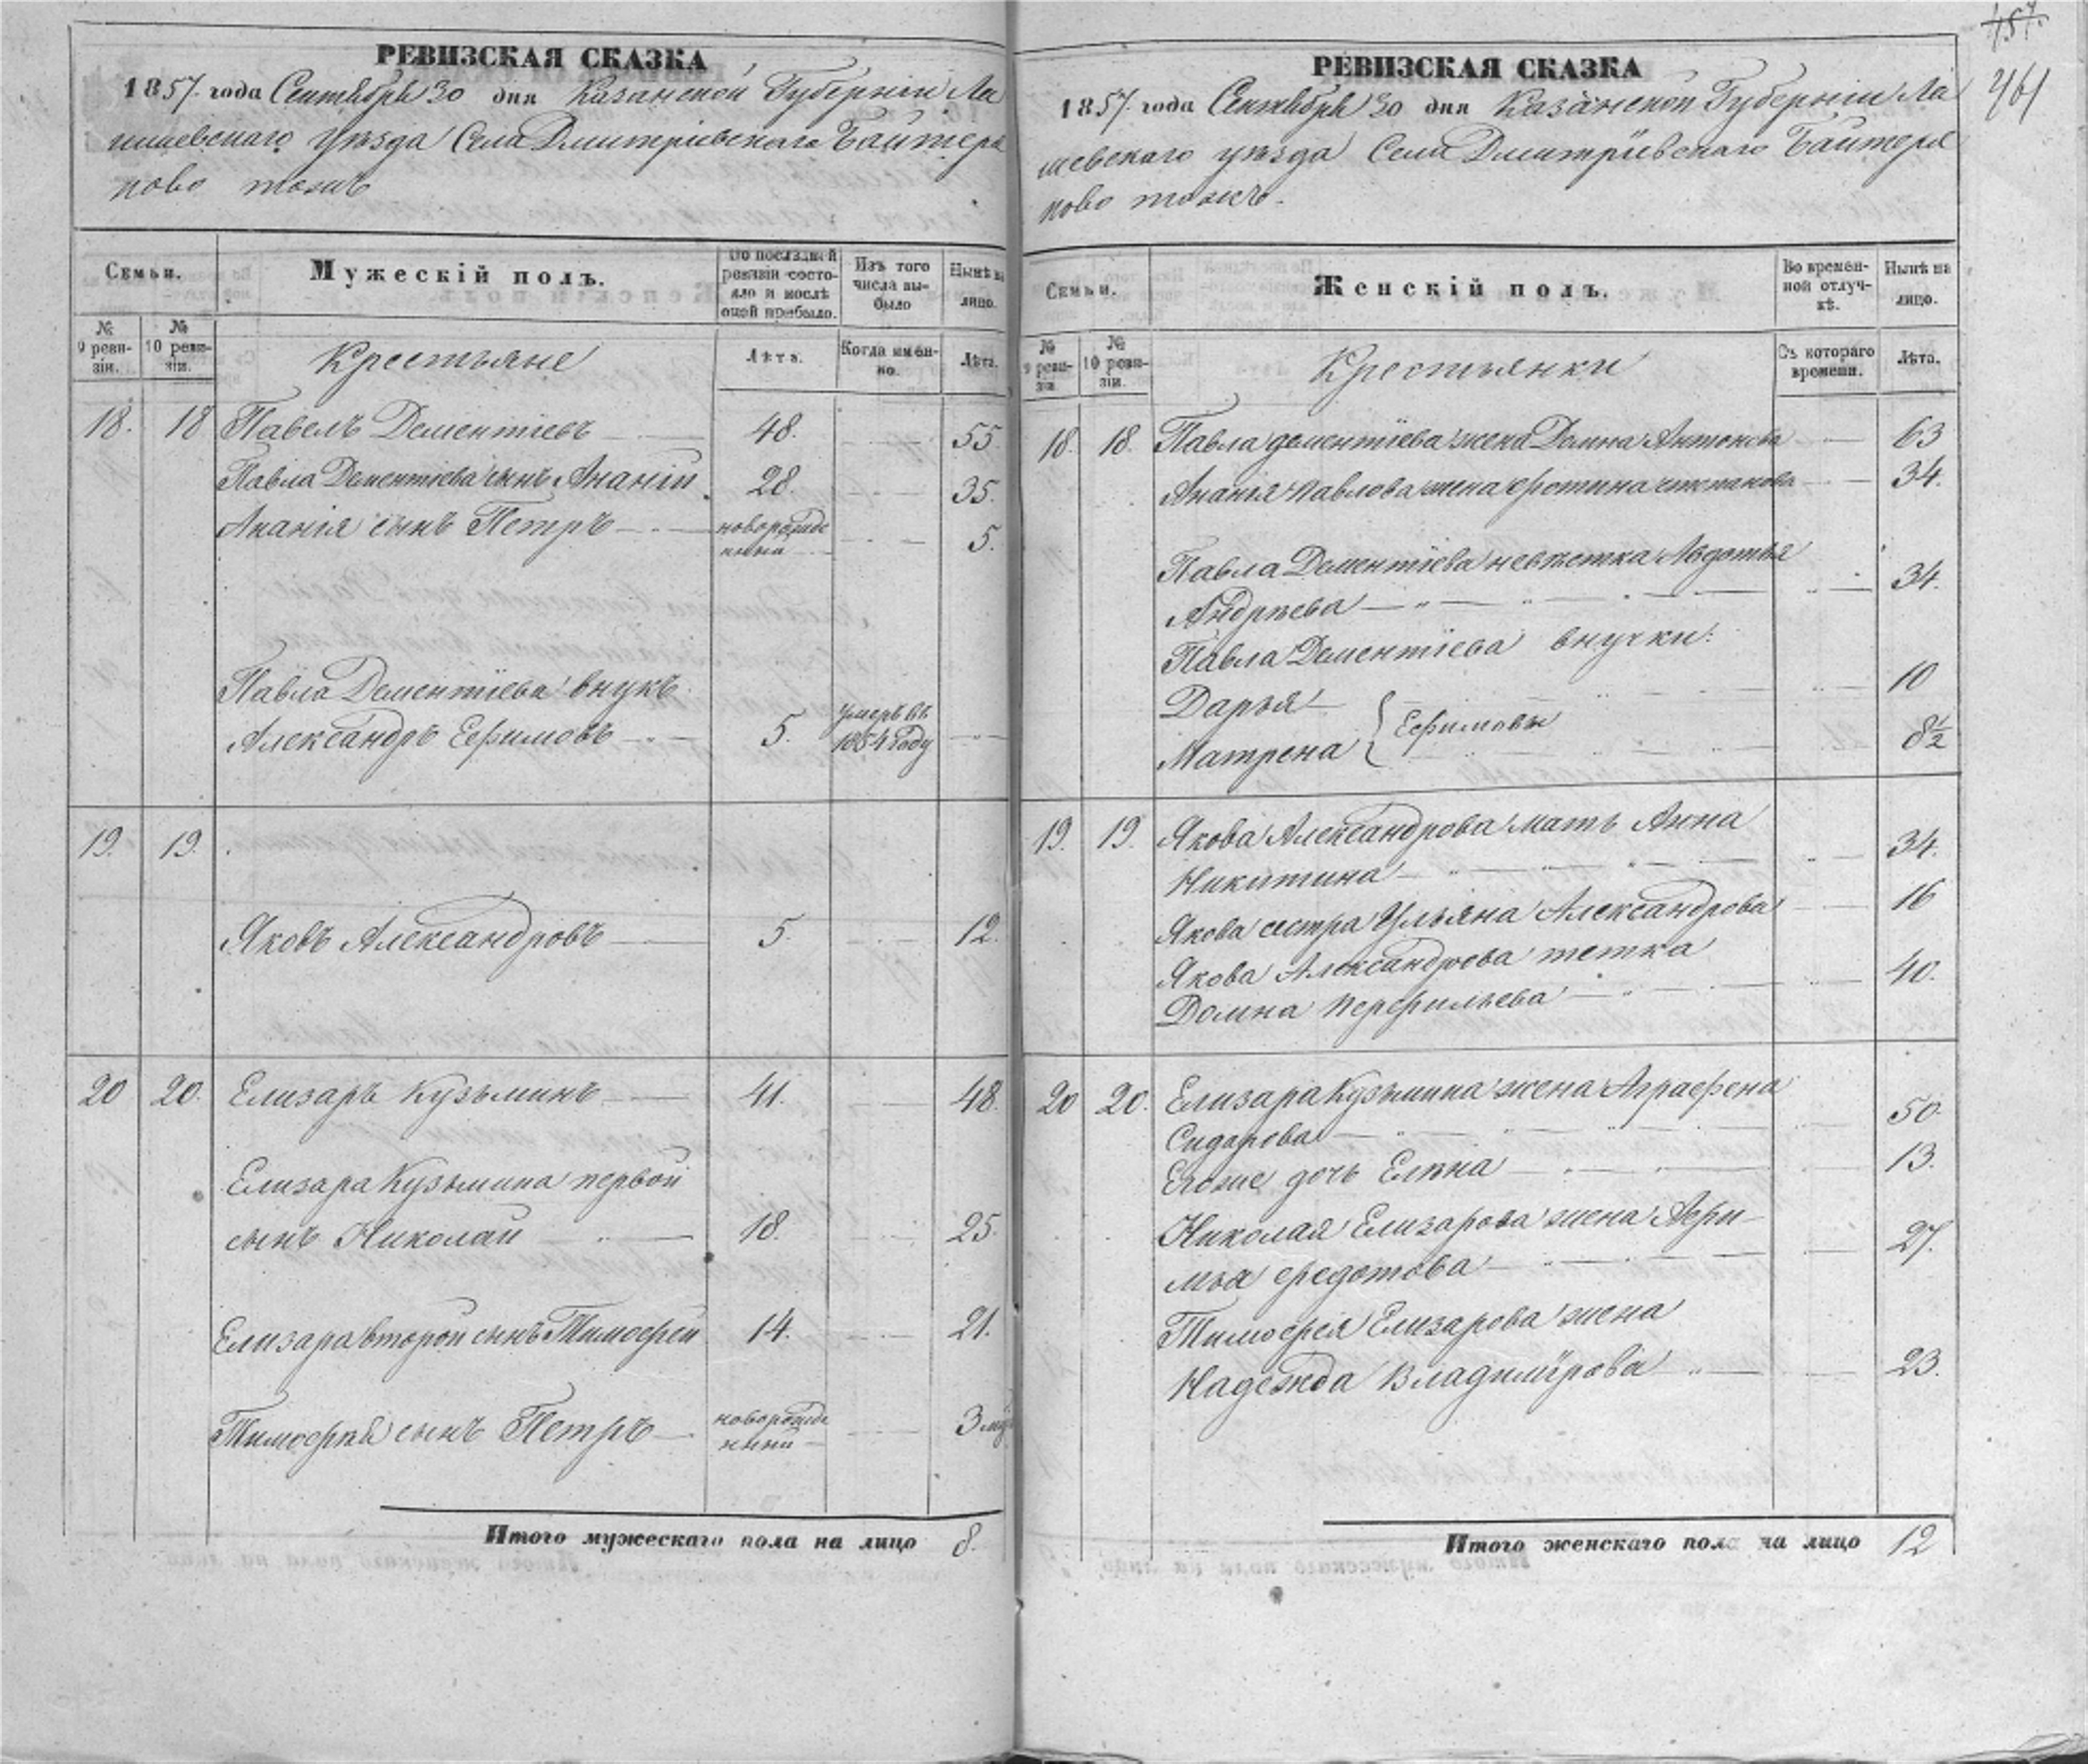 РЕВИЗСКАЯ СКАЗКА
1857 года Сентября 30 дня Казанской Губерніи Ла
ишевскаго уѣзда Села Дмитріевскаго Байтеря
ково тожъ
Семьи.
Мужескій полъ.
По послѣдней ревизіи состояло и послѣ оной прибыло.
Изъ того числа выбыло
Нынѣ на лицо.
№ 9 ревизіи.
№ 10 ревизіи.
Крестьяне
Лѣта.
Когда именно.
Лѣта.
18. 18 Павелъ Дементіевъ 48. 55.
Павла Дементіева сынъ Ананій 28. 35.
Ананія сынъ Петръ новорожде 5.
нный
Павла Дементіева внукъ
Александръ Ефимовъ 5. умеръ въ
1854 году
19. 19.
Яковъ Александровъ 5. 12.
20 20. Елизаръ Кузьминъ 41. 48.
Елизара Кузьмина первой
сынъ Николай 18. 25.
Елизара второй сынъ Тимофей 14. 21.
Тимофея сынъ Петръ новорожде 3
нный
Итого мужескаго пола на лицо 8.
457.
461
РЕВИЗСКАЯ СКАЗКА
1857 года Сентября 30 дня Казанской Губерніи Ла
шевскаго уѣзда Села Дмитріевскаго Байтеря
ково тожъ.
Семьи.
Женскій полъ.
Во временной отлучкѣ.
Нынѣ на лицо.
№ 9 ревизіи.
№ 10 ревизіи.
Крестьянки
Съ котораго времени.
Лѣта.
18. 18. Павла дементіева жена Домна Антонова 63
Ананія Павлова жена Фотина степанова 34.
Павла Дементіева невѣстка Авдотья
Андрѣева 34.
Павла Дементіева внучки:
Дарья 10
Ефимовы
Матрена 8½
19. 19. Якова Александрова мать Анна
Никитина 34.
Якова сестра Ульяна Александрова 16
Якова Александрова тетка
Домна Перфильева 40.
20 20. Елизара Кузьмина жена Аграфена
Сидарова 50.
Егоже дочь Елѣна 13.
Николая Елизарова жена Афи
мья Федотова 27.
Тимофея Елизарова жена
Надежда Владимірова 23.
Итого женскаго пола на лицо 12